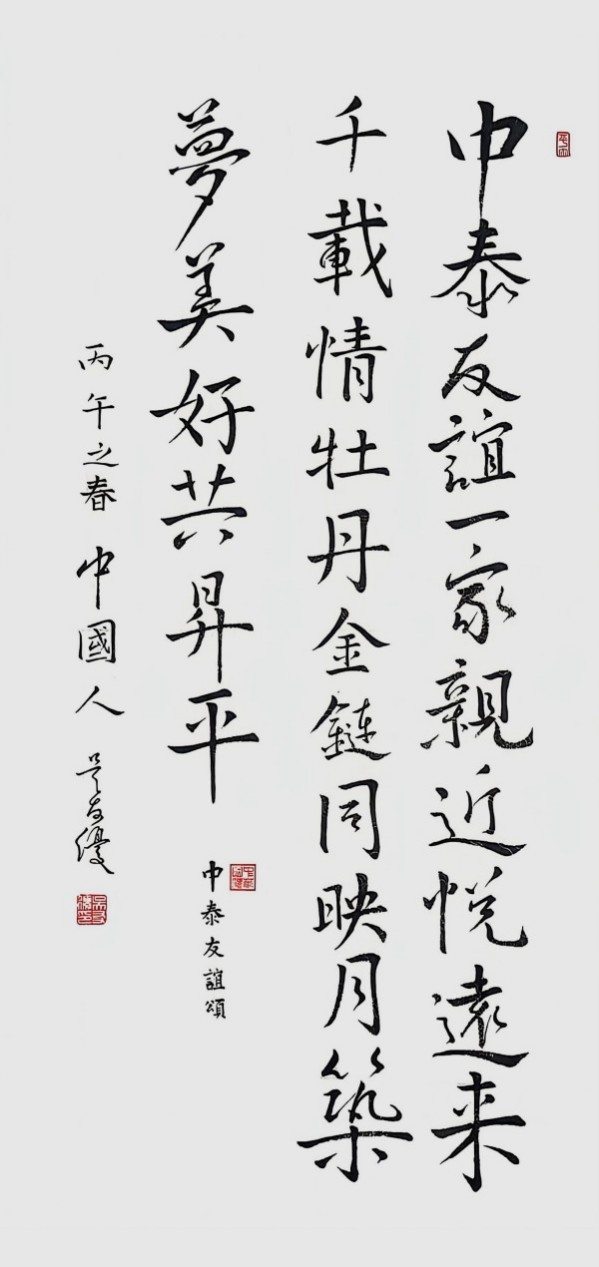 中泰友誼一家親近悦遠来
千載情牡丹金鏈同映月築
夢美好共昇平
中泰友誼頌
丙午之春 中國人